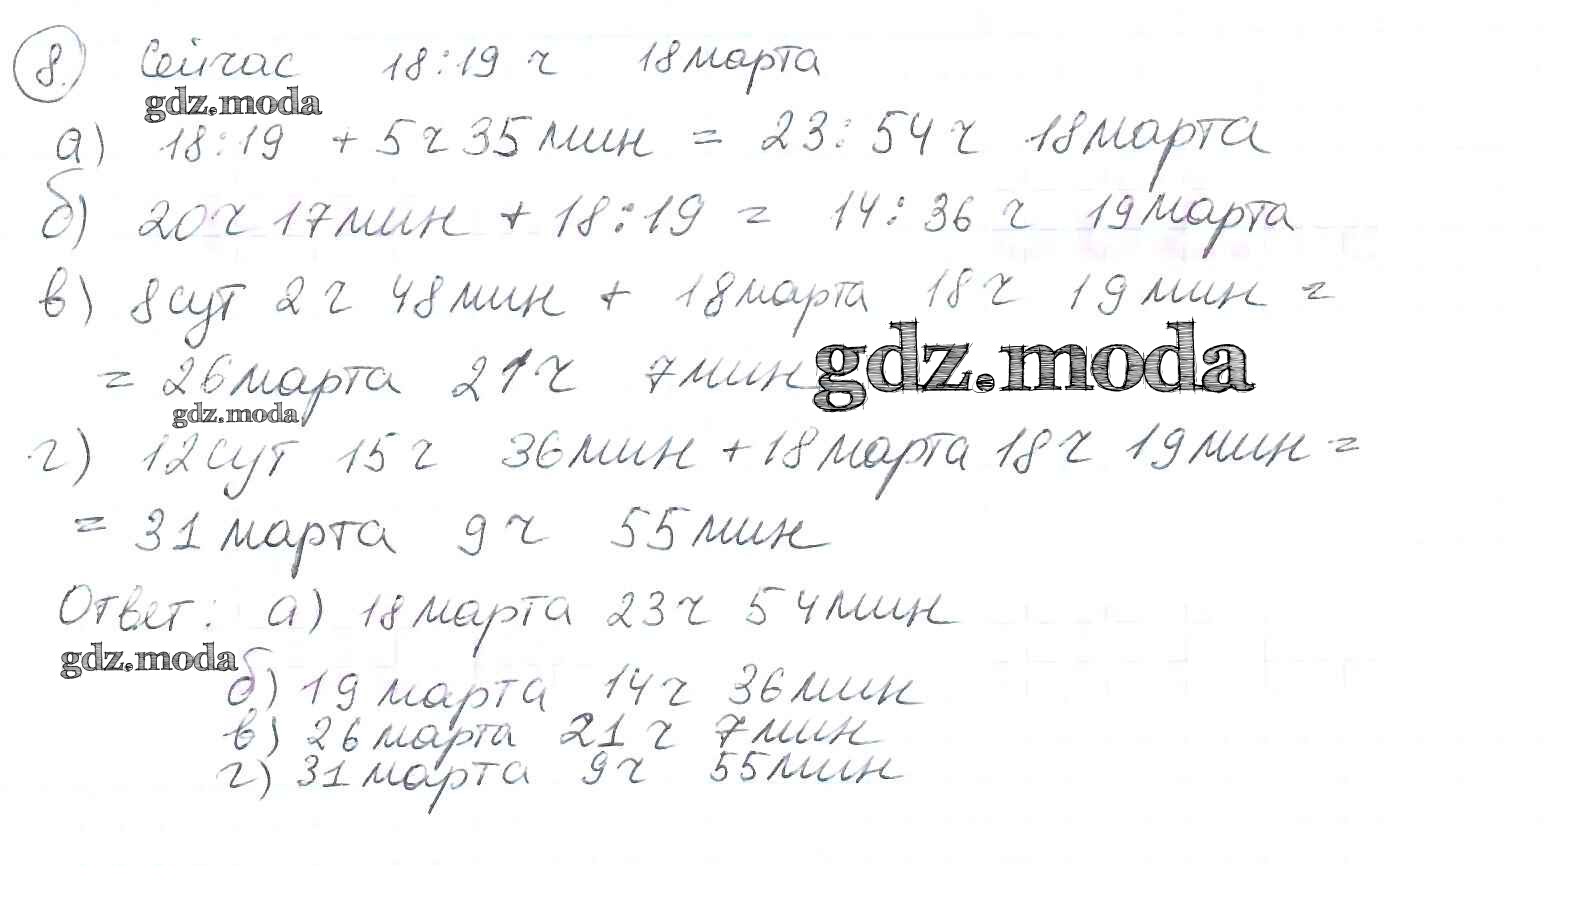 8. Сейчас 18:19 ч 18 марта
gdz.moda
а) 18:19 + 5 ч 35 мин = 23:54 ч 18 марта
б) 20 ч 17 мин + 18:19 = 14:36 ч 19 марта
в) 8 сут 2 ч 48 мин + 18 марта 18 ч 19 мин =
= 26 марта 21 ч 7 мин
gdz.moda
gdz.moda
г) 12 сут 15 ч 36 мин + 18 марта 18 ч 19 мин =
= 31 марта 9 ч 55 мин
Ответ: а) 18 марта 23 ч 54 мин
gdz.moda
б) 19 марта 14 ч 36 мин
в) 26 марта 21 ч 7 мин
г) 31 марта 9 ч 55 мин